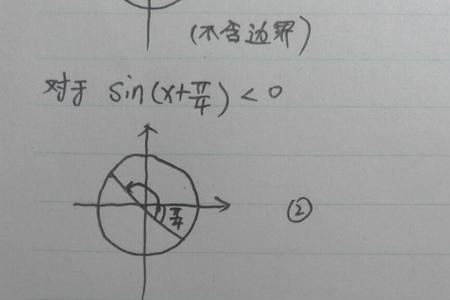 (不含边界)
对于 sin(x+π/4) < 0
π/4 ②